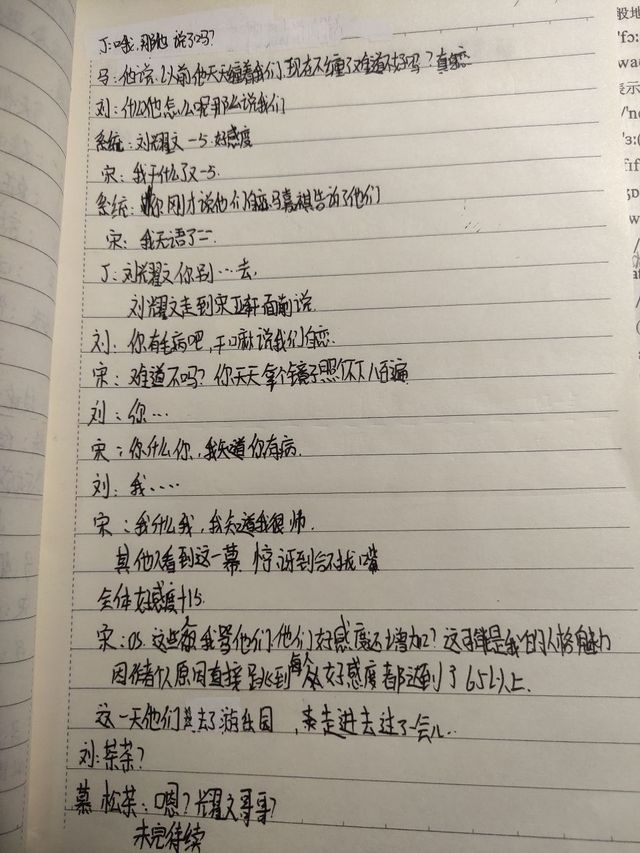 J:哦,那他说了吗?
马:他说.以前他天天缠着我们,现在不缠了难道不好吗?真自恋
刘:什么他怎么呢那么说我们
系统:刘耀文-5.好感度
宋:我干什么了又-5.
系统:你刚才说他们自恋马嘉祺告诉了他们
宋:我无语了二.
J:刘耀文你别…去,
刘耀文走到宋亚轩面前说.
刘:你有毛病吧,干嘛说我们自恋.
宋:难道不吗?你天天拿个镜子照不下八百遍
刘:你…
宋:你什么你,我知道你有病.
刘:我....
宋:我什么我,我知道我很帅.
其他人看到这一幕惊讶到合不拢嘴
全体好感度+15.
宋:os.这些 我骂他们,他们好感度还增加?这可能是我的人格魅力
因作者 原因直接跳到每个人好感度都达到了65以上.
这一天他们去了游乐园, 走进去过了一会儿..
刘:茶茶?
慕松茶:嗯?耀文哥哥?
未完待续
般地
'fɔ:
wa
表示
/'n
'ɜ:(
fıf